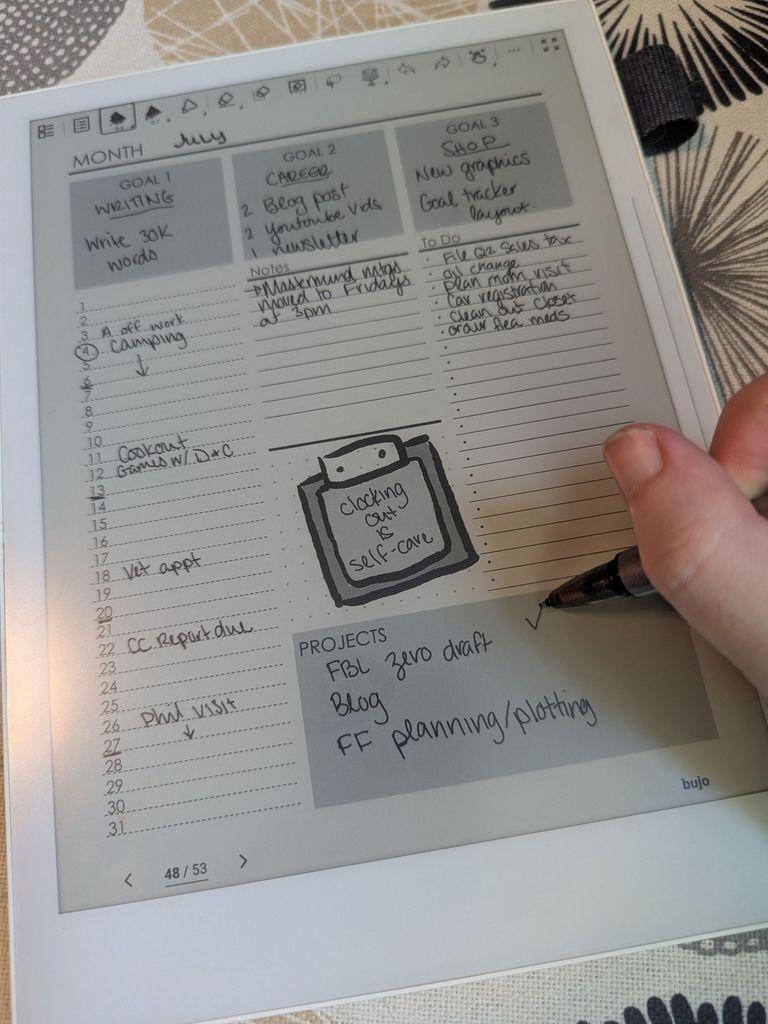 MONTH July
GOAL 1
WRITING
Write 30K
words
GOAL 2
CAREER
2 Blog post
2 youtoube vids
1 newsletter
GOAL 3
SHOP
New graphics
Goal tracker
layout.
Notes
Mastermind mtgs
moved to Fridays
at 3pm
To Do
File Q2 Sales tax
oil change
Plan mom visit
Car registration
Clean out closet
order flea meds
1
2
3 A off work
4 Camping
5
6
7
8
9
10
11 Cookout
12 Games w/ D+C
13
14
15
16
17
18 Vet appt
19
20
21
22 CC Report due
23
24
25
26 Phil visit
27
28
29
30
31
clocking
out
is
self-care
PROJECTS
FBL zero draft
Blog
FF planning/plotting
bujo
48 / 53